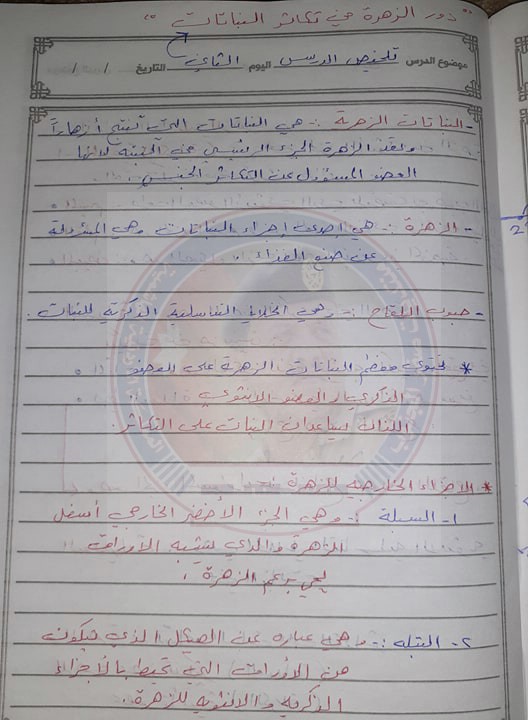 " دور الزهرة في تكاثر النباتات "
موضوع الدرس تلخيص الدرس اليوم الثاني التاريخ / /
- النباتات الزهرية :- هي النباتات التي تنتج أزهاراً
وتعد الزهرة الجزء الرئيسي في لأنها
العضو المسؤول عن التكاثر الجنسي .
- الزهرة :- هي احدى اجزاء النباتات وهي المسؤولة
عن صنع الغذاء .
- حبوب اللقاح :- وهي الخلايا التناسلية الذكرية للنبات .
* تحتوي معظم النباتات الزهرة على العضو
الذكري والعضو الانثوي
اللذان يساعدان النبات على التكاثر .
* الاجزاء الخارجية للزهرة :-
١- السبلة :- وهي الجزء الأخضر الخارجي أسفل
الزهرة والذي يشبه الأوراق
يحمي برعم الزهرة .
٢- البتلة :- وهي عباره عن الهيكل الذي يتكون
من الأوراق التي تحيط بالأجزاء
الذكرية والانثوية للزهرة .